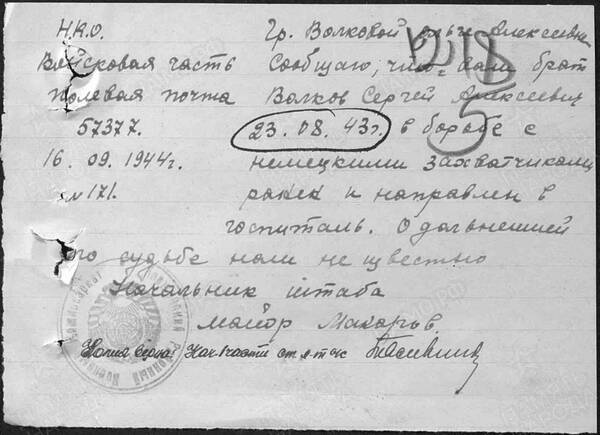 Н.К.О. Гр. Волковой Ольге Алексеевне
Войсковая часть Сообщаю, что ваш брат
Полевая почта Волков Сергей Алексеевич
57377. 23.08.43г. в борьбе с
16.09.1944г. немецкими захватчиками
№171. ранен и направлен в
госпиталь. О дальнейшей
его судьбе нам не известно
Начальник штаба
майор Макаров.
Копия верна: Нач 1 части ст. л-т
1218
5